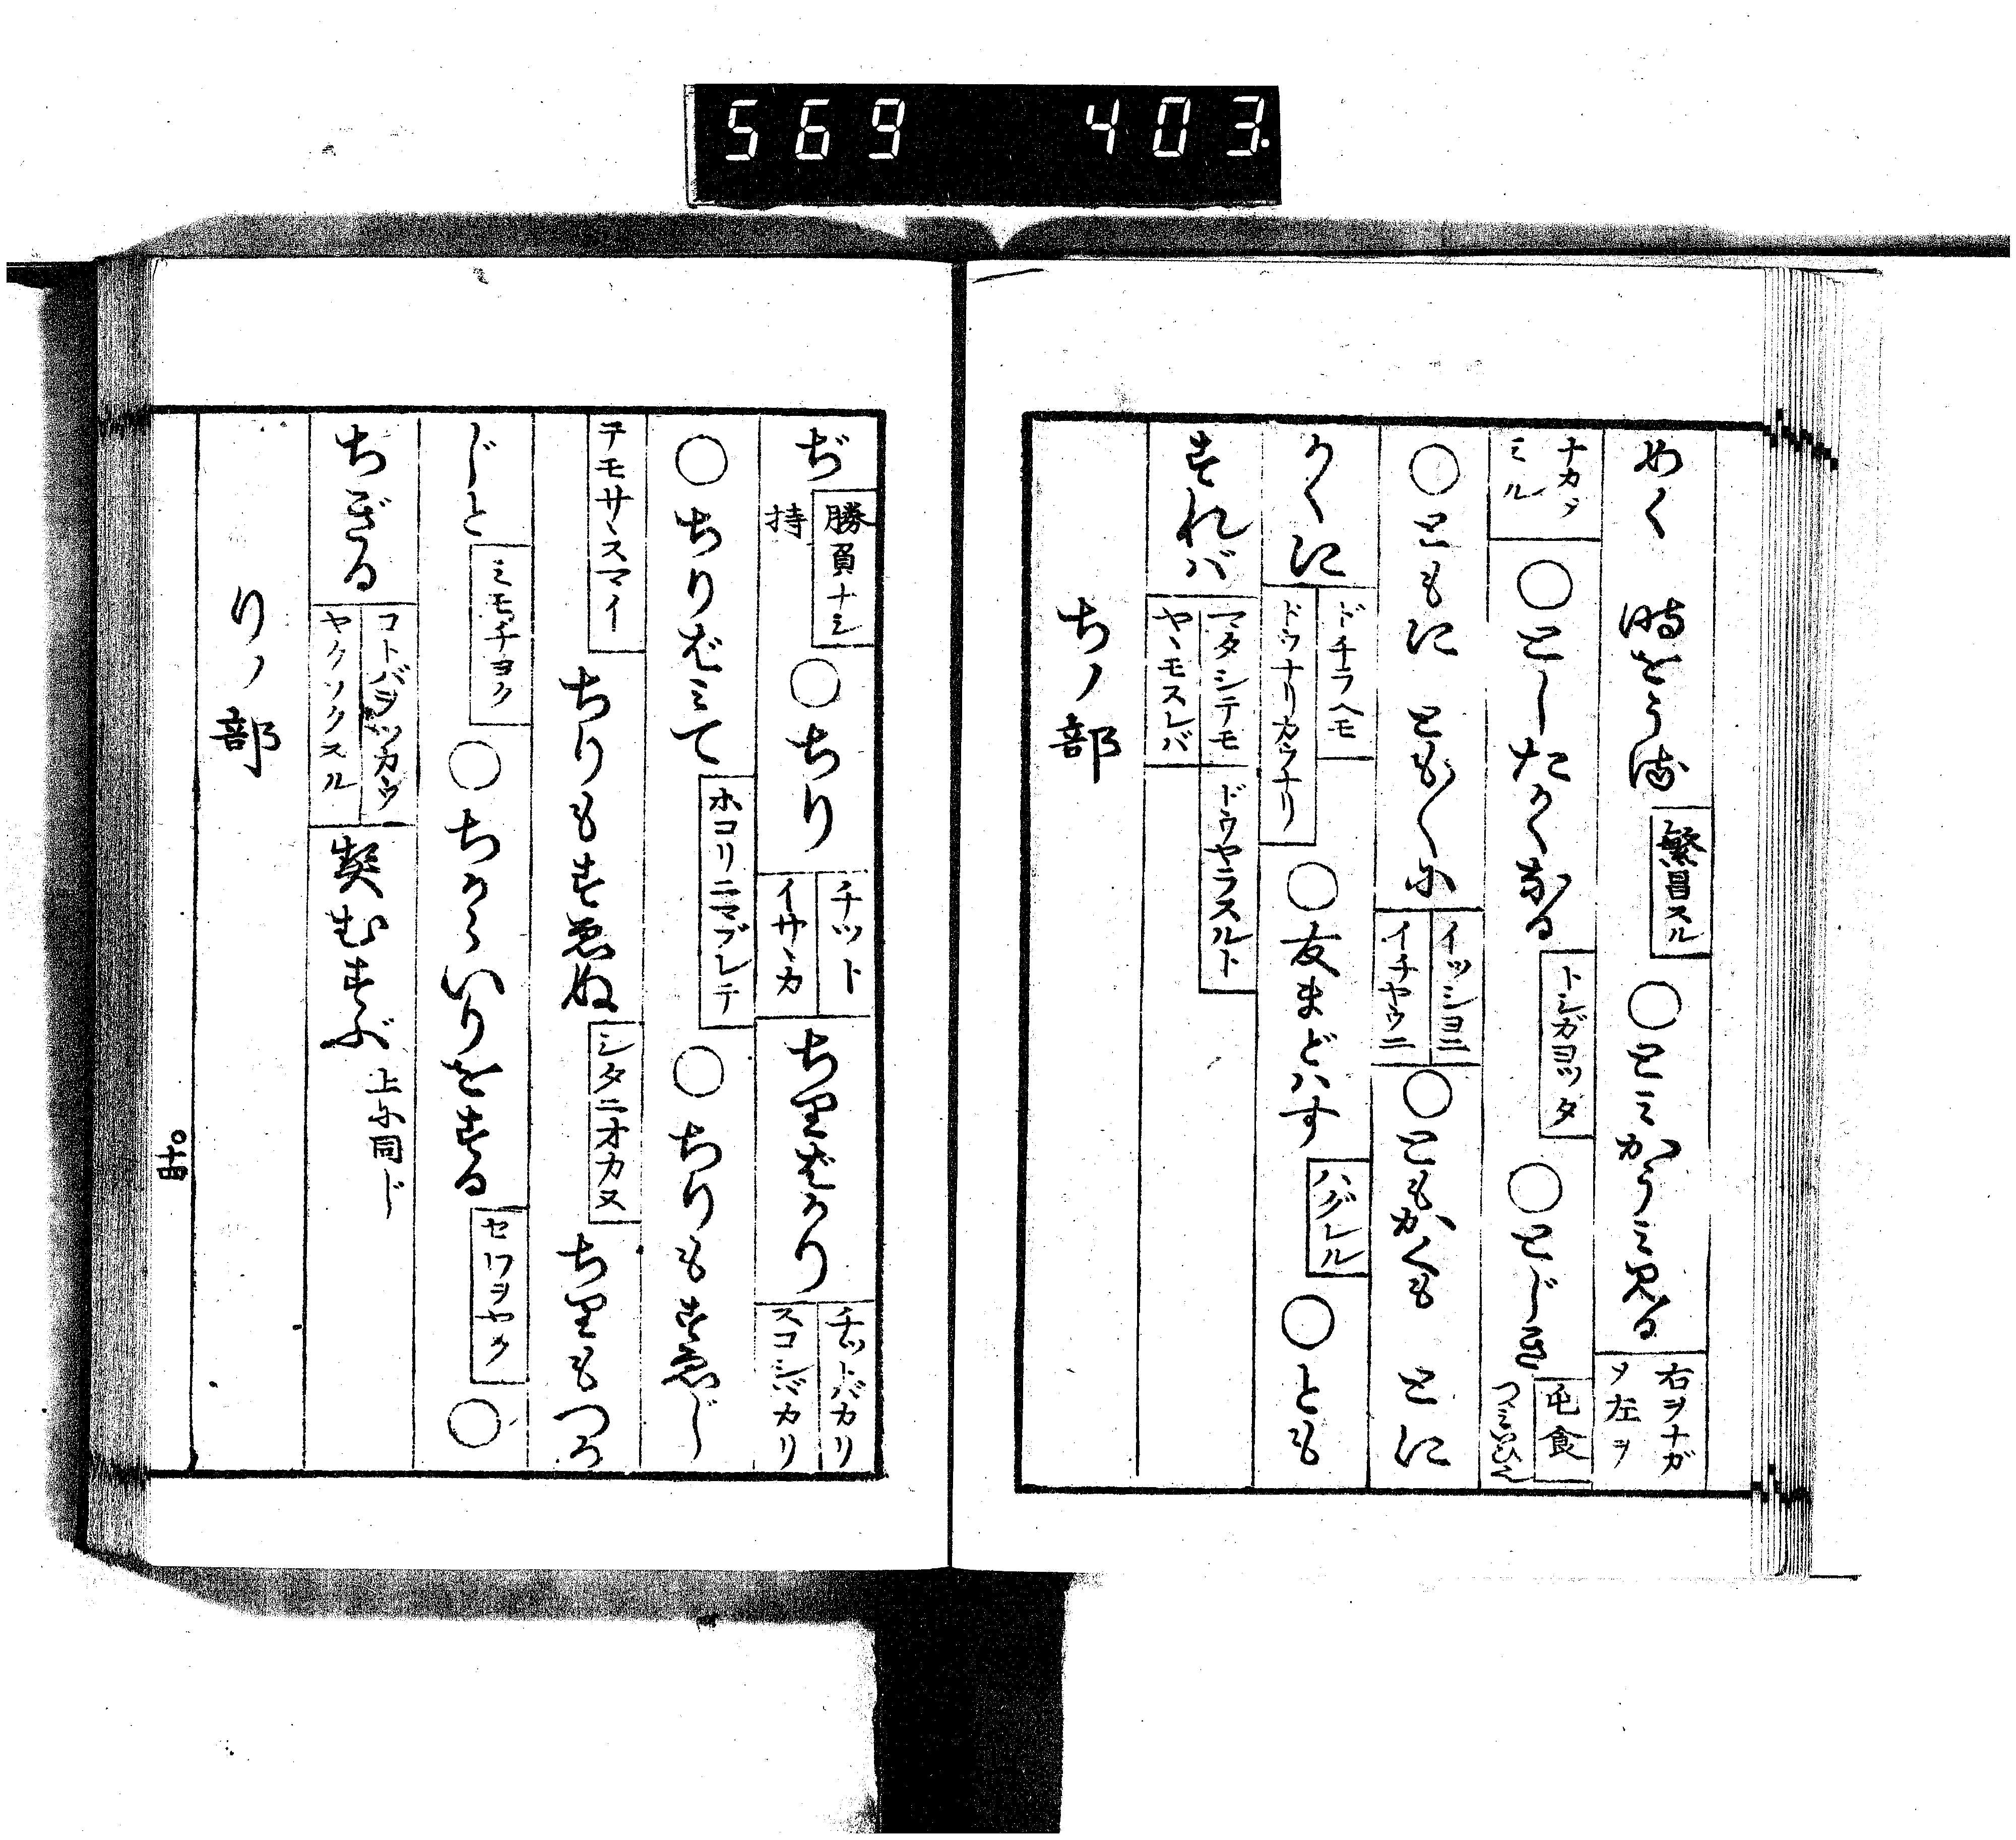 569 403.
めく 時をうる 繁昌スル ○とミかうミ見る 右ヲナガメ左ヲ
ナカメミル ○としたかくなる トシガヨツタ ○とじき 屯食
○ともに ともともに イッショニ イチヤウニ ○ともかくも とに
かくに ドチラヘモ ドウナリカウナリ ○友まどハす ハグレル ○とも
すれバ マタシテモ ヤヽモスレバ ドウヤラスルト
ちノ部
ぢ 勝負ナシ 持 ○ちり チツト イサヽカ ちりばかり チツトバカリ スコシバカリ
○ちりばミて ホコリニマブレテ ○ちりもすゑじ
テモサヽスマイ ちりもすゑぬ シタニオカヌ ちりもつか
じと ミモチヨク ○ちからいりをする セワヲヤク ○
ちぎる コトバヲツカウ ヤクソクスル 契むすぶ 上に同じ
りノ部